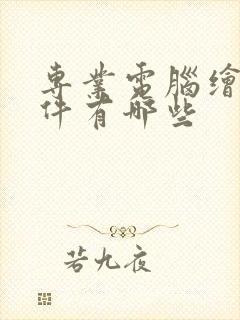 專業電腦繪
件有哪些
若九夜